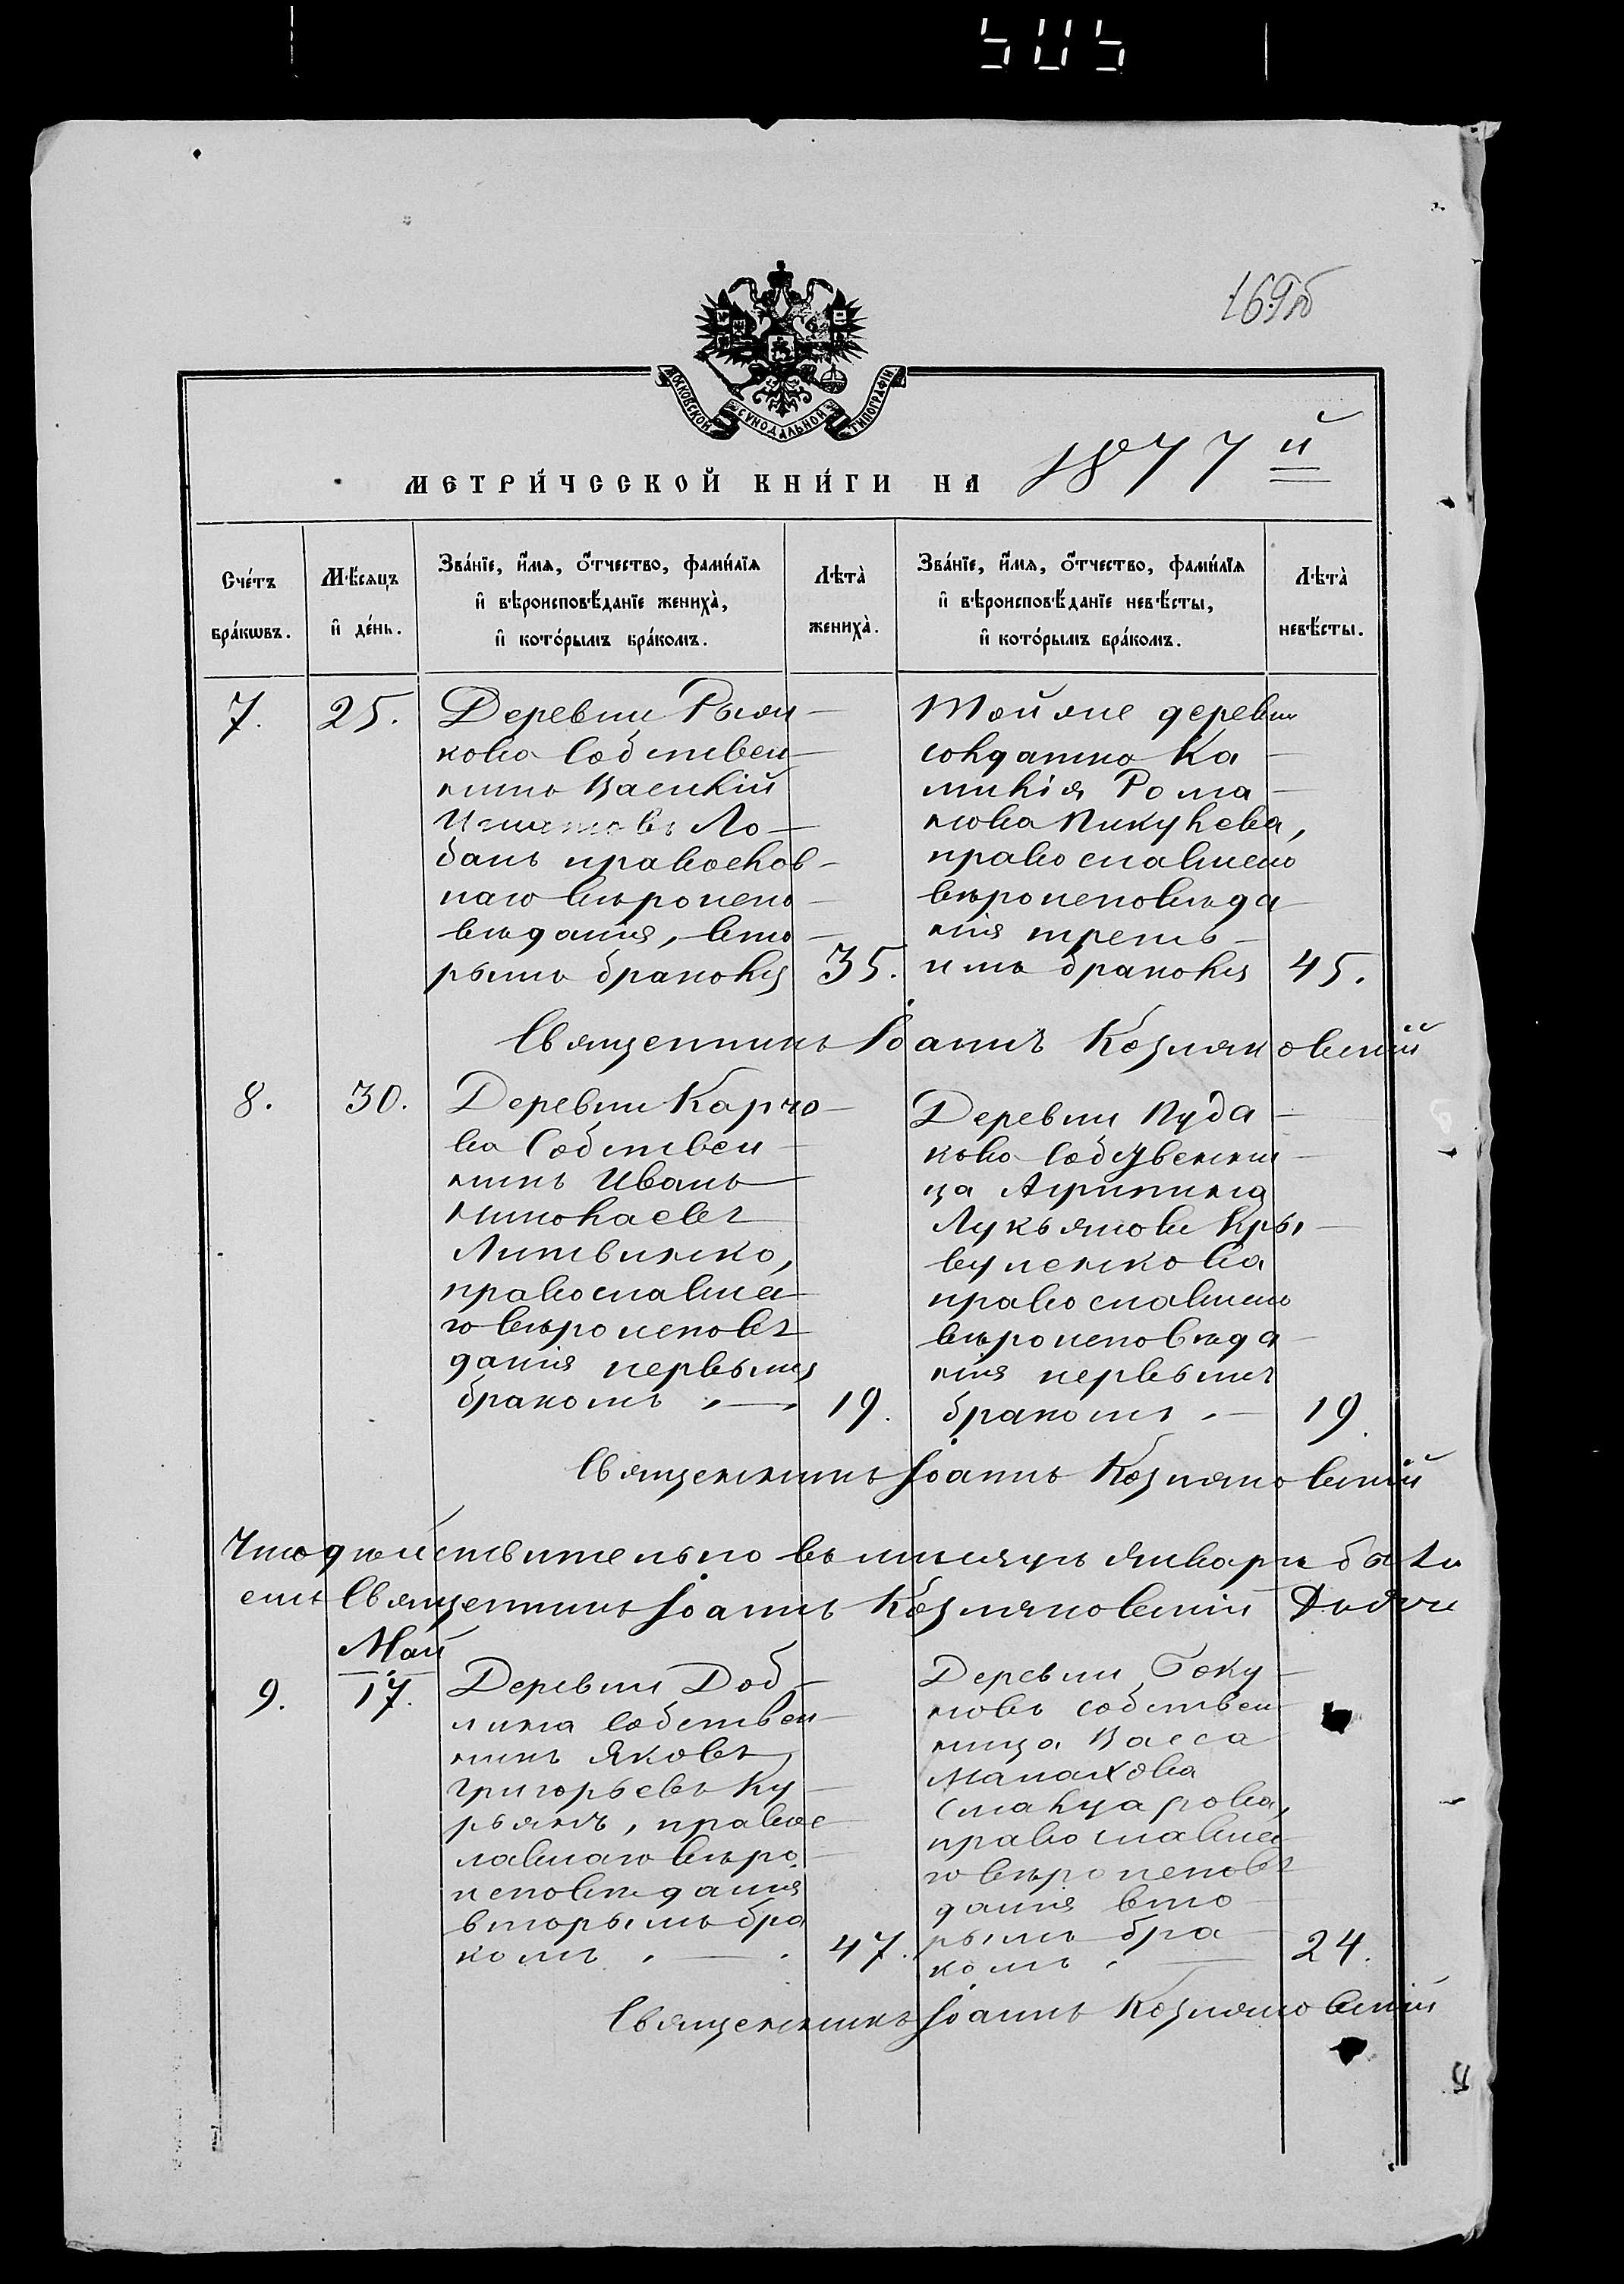 505
169об
МОСКОВСКОЙ СѴНОДАЛЬНОЙ ТИПОГРАФІИ
МЕТРИ́ЧЕСКОЙ КНИ́ГИ НА 1877й
Сче́тъ бра́кѡвъ.
Мѣ́сѧцъ и҆ де́нь.
Зва́нїе, и҆́мѧ, ѻ҆́тчество, фами́лїѧ
и҆ вѣроисповѣ́данїе женихà,
и҆ кото́рымъ бра́комъ.
Лѣтà женихà.
Зва́нїе, и҆́мѧ, ѻ҆́тчество, фами́лїѧ
и҆ вѣроисповѣ́данїе невѣ́сты,
и҆ кото́рымъ бра́комъ.
Лѣтà невѣ́сты.
7.
25.
Деревни
кова Собствен-
никъ Василій
Игнатовъ Ло-
банъ православ-
наго вѣроиспо-
вѣданія, вто-
рымъ бракомъ
35.
Той же деревни
солдатка Ка-
Рома-
нова Пикулева,
православнаго
вѣроисповѣда-
нія треть-
имъ бракомъ
45.
Священникъ Іоаннъ Козляковскій
8.
30.
Деревни Карчо-
ва Собствен-
никъ Иванъ
Николаевъ
Литвинко,
православна-
го вѣроисповѣ
данія первымъ
бракомъ
19.
Деревни Пуда-
кова Собственни-
ца Агрипина
Лукьянова Кры-
православнаго
вѣроисповѣда-
нія первымъ
бракомъ
19.
Священникъ Іоаннъ Козляковскій
Что дѣйствительно въ мѣсяцѣ Январѣ
Священникъ Іоаннъ Козляковскій
Май
9.
17.
Деревни Доб-
лина Собствен-
никъ Яковъ
Григорьевъ Ку-
рьянъ, правос-
лавнаго вѣро-
исповѣданія
вторымъ бра
комъ
47.
Деревни
собствен-
ница Васса
Малахова
православна-
го вѣроисповѣ
данія вто-
рымъ бра-
комъ
24.
Священникъ Іоаннъ Козляковскій